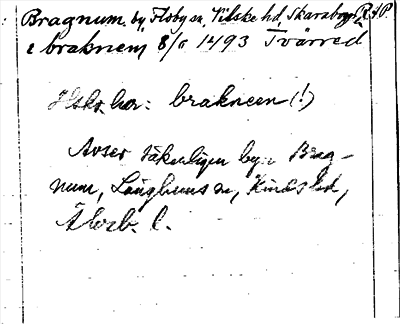 Bragnum by, Floby sn, Vilske hd, Skarabrgs l. R A P.
i braknem 8/5 1493 Tvärred
har: brakneen (!)
Avser säkerligen byn Brag-
num, Länghems sn, Kinds hd,
Älvsb. l.